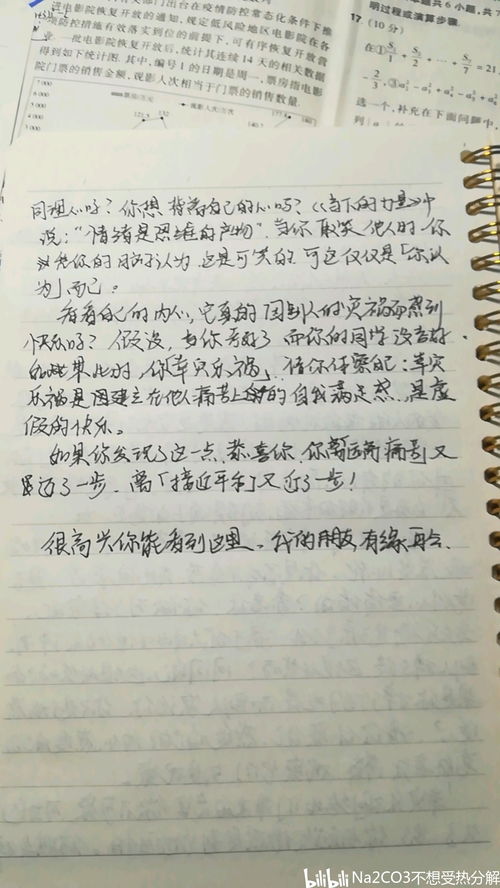 进电影院恢复开放的通知,规定低风险地区电影院在各
项防控措施有效落实到位的前提下,可有序恢复开放营
一批电影院恢复开放后,统计其连续14天的相关数据
得到如下统计图.其中,编号1的日期是周一,票房指电影
院门票的销售金额,观影人次相当于门票的销售数量.
17 (10分)
明过程或演算步骤.
选一个,补充在下面问题中,
同理心吗?你想背离自己的心吗?《当下的力量》中
说:“情绪是思维的产物”.当你取笑他人时,你
认为这是可笑的.可这仅仅是「你认
为」而已.
看看自己的内心,它真的因别人的灾祸而感到
快乐吗?假设,当你考好了而你的同学没考好
如果此时,你「幸灾乐祸」,请你仔察觉:幸灾
乐祸是建立在他人痛苦上的自我满足感,是虚
假的快乐.
如果你发现了这一点,恭喜你,你离远离痛苦又
近了一步,离「接近平和」又近了一步!
很高兴你能看到这里,我的朋友,有缘再会.
bilibili Na2CO3不想受热分解